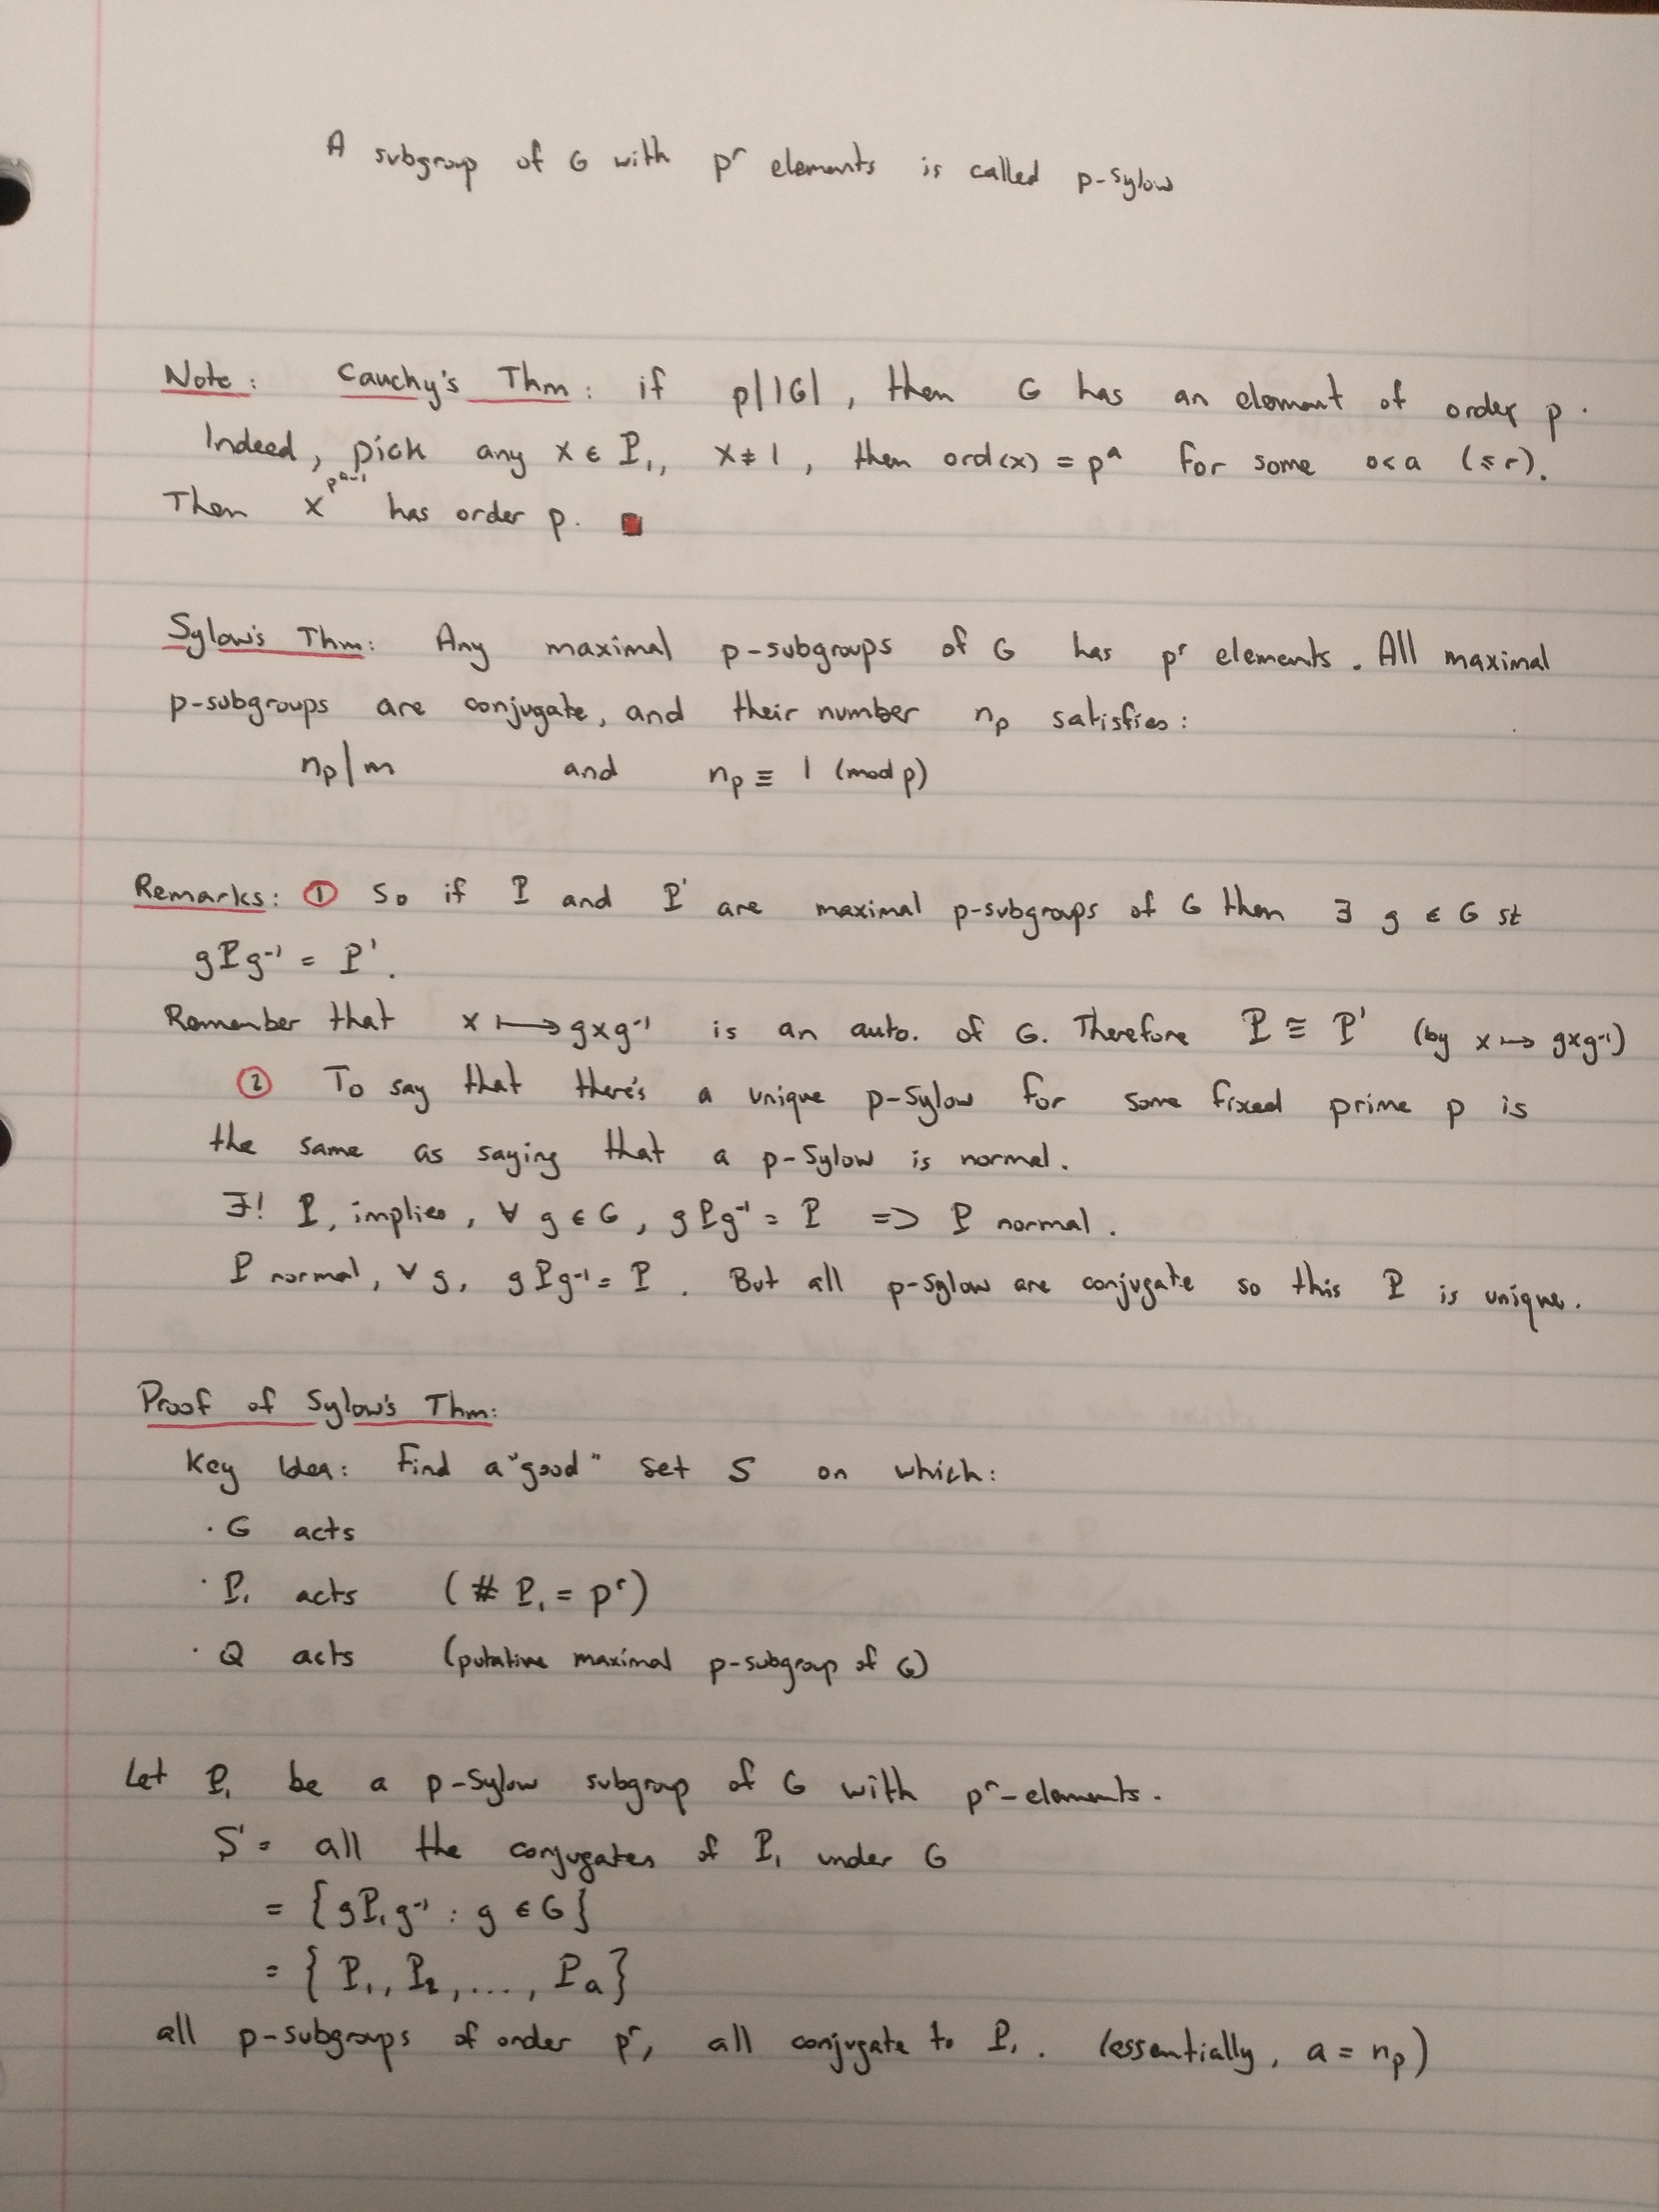 A subgroup of G with pʳ elements is called p-Sylow
Note: Cauchy's Thm: if p||G|, then G has an element of order p.
Indeed, pick any x ∈ P₁, x≠1, then ord(x) = pᵃ for some o<a (≤r).
Then x^{p^{a-1}} has order p. ■
Sylow's Thm: Any maximal p-subgroups of G has pʳ elements. All maximal
p-subgroups are conjugate, and their number nₚ satisfies:
nₚ|m and nₚ ≡ 1 (mod p)
Remarks: ① So if P and P' are maximal p-subgroups of G then ∃ g ∈ G st
gPg⁻¹ = P'.
Remember that x ↦ gxg⁻¹ is an auto. of G. Therefore P ≡ P' (by x ↦ gxg⁻¹)
② To say that there's a unique p-Sylow for some fixed prime p is
the same as saying that a p-Sylow is normal.
∃! P, implies, ∀ g ∈ G, gPg⁻¹ = P => P normal.
P normal, ∀ g, gPg⁻¹ = P. But all p-Sylow are conjugate so this P is unique.
Proof of Sylow's Thm:
Key Idea: Find a "good" set S on which:
· G acts
· P₁ acts (# P₁ = pʳ)
· Q acts (putative maximal p-subgroup of G)
Let P₁ be a p-Sylow subgroup of G with pʳ-elements.
S = all the conjugates of P₁ under G
= {gP₁g⁻¹ : g ∈ G}
= {P₁, P₂, ..., Pₐ}
all p-subgroups of order pʳ, all conjugate to P₁. (essentially, a = nₚ)